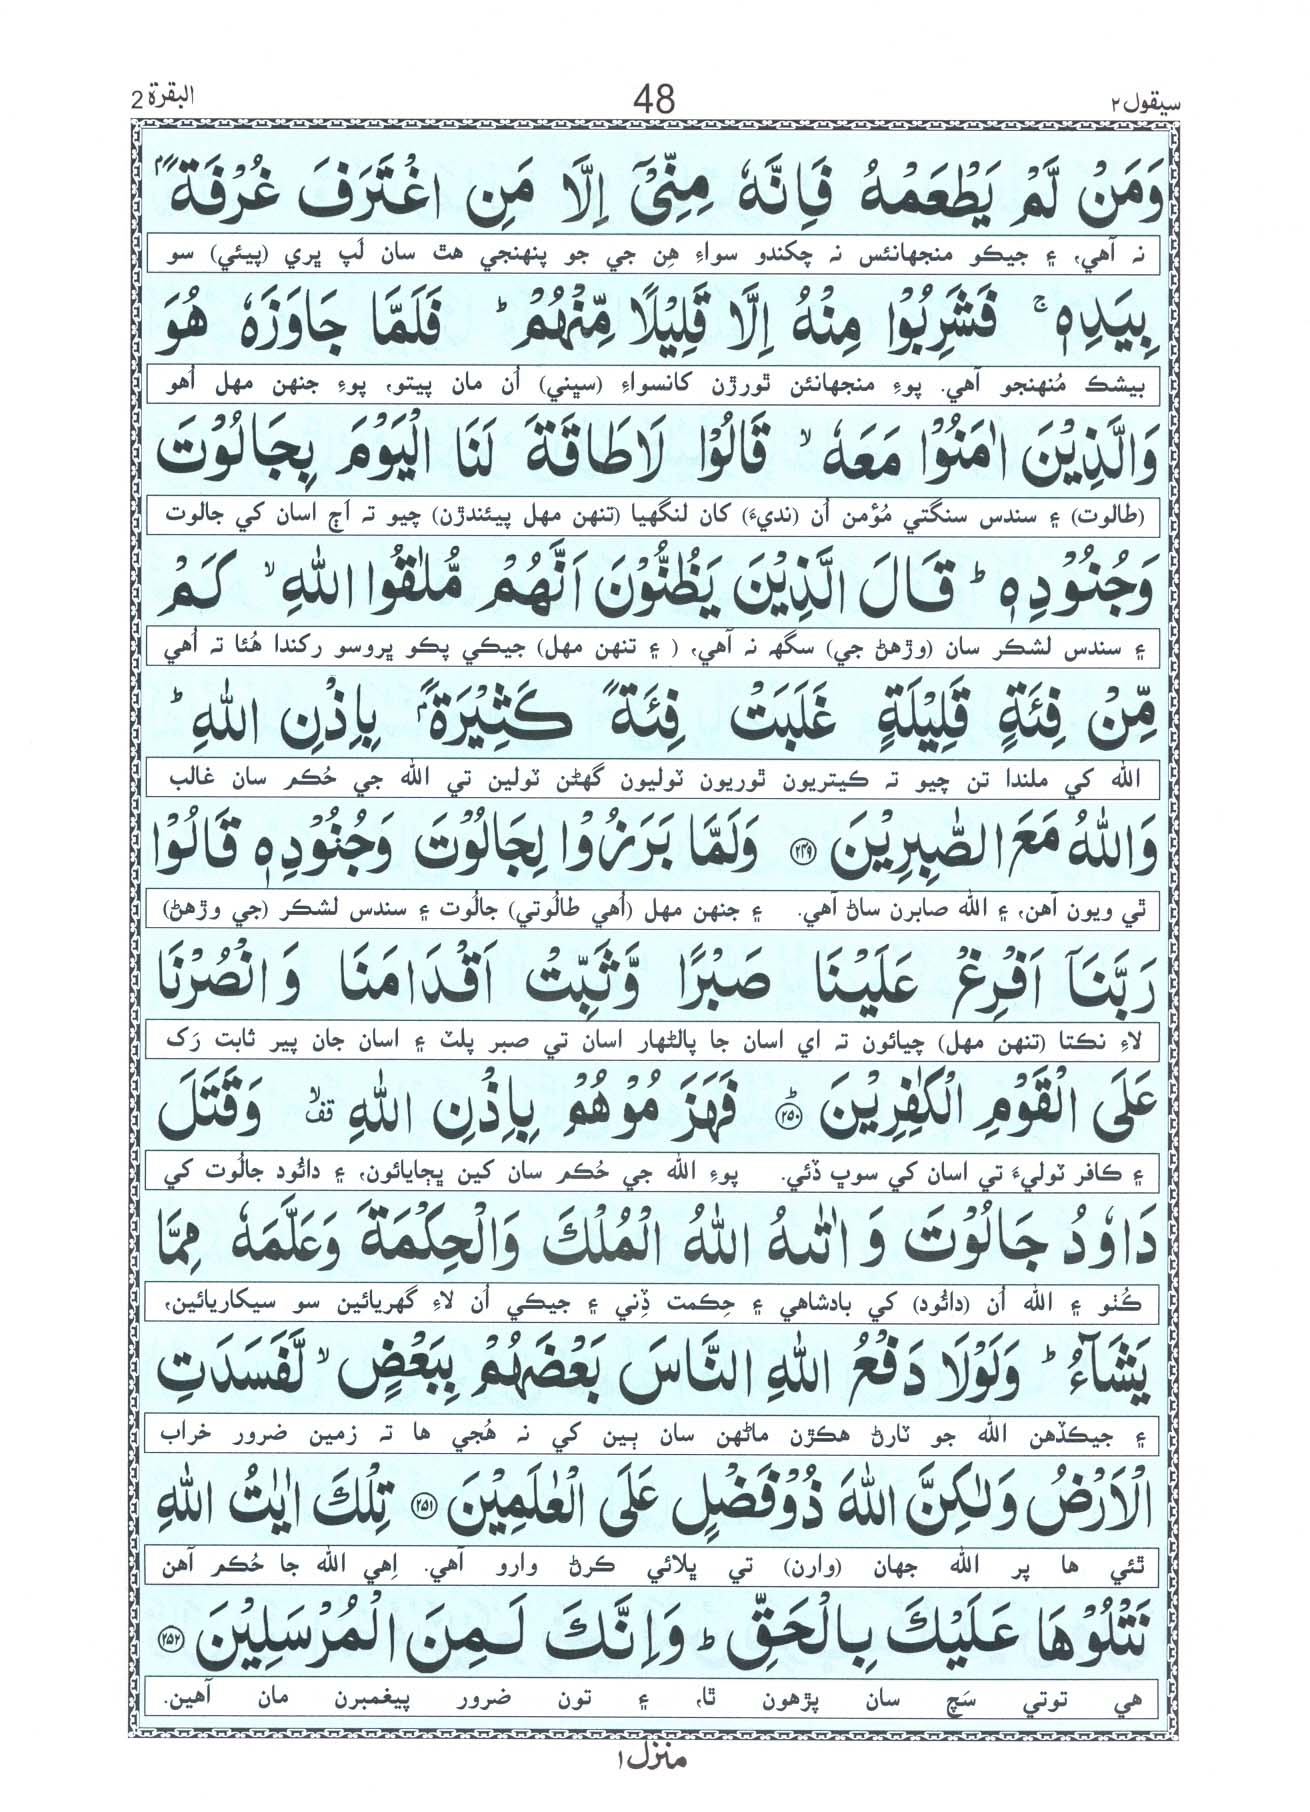 سيقول ٢
48
البقرة 2
وَمَنْ لَّمْ يَطْعَمْهُ فَاِنَّهٗ مِنِّيْٓ اِلَّا مَنِ اغْتَرَفَ غُرْفَةًۢ
نہ آهي، ۽ جيڪو منجهانئس نہ چکندو سواءِ هِن جي جو پنهنجي هٿ سان لَپ ڀري (پيئي) سو
بِيَدِهٖ ۚ فَشَرِبُوْا مِنْهُ اِلَّا قَلِيْلًا مِّنْهُمْ ؕ فَلَمَّا جَاوَزَهٗ هُوَ
بيشڪ مُنهنجو آهي. پوءِ منجهانئن ٿورڙن کانسواءِ (سڀني) اُن مان پيتو، پوءِ جنهن مهل اُهو
وَالَّذِيْنَ اٰمَنُوْا مَعَهٗ ۙ قَالُوْا لَا طَاقَةَ لَنَا الْيَوْمَ بِجَالُوْتَ
(طالوت) ۽ سندس سنگتي مُؤمن اُن (نديءَ) کان لنگهيا (تنهن مهل پيئندڙن) چيو تہ اَڄ اسان کي جالوت
وَجُنُوْدِهٖ ؕ قَالَ الَّذِيْنَ يَظُنُّوْنَ اَنَّهُمْ مُّلٰقُوا اللّٰهِ ۙ كَمْ
۽ سندس لشڪر سان (وڙهڻ جي) سگهہ نہ آهي، ( ۽ تنهن مهل) جيڪي پڪو ڀروسو رکندا هُئا تہ اُهي
مِّنْ فِئَةٍ قَلِيْلَةٍ غَلَبَتْ فِئَةً كَثِيْرَةًۢ بِاِذْنِ اللّٰهِ ؕ
الله کي ملندا تن چيو تہ ڪيتريون ٿوريون ٽوليون گهڻن ٽولين تي الله جي حُڪم سان غالب
وَاللّٰهُ مَعَ الصّٰبِرِيْنَ ﴿۲۴۹﴾ وَلَمَّا بَرَزُوْا لِجَالُوْتَ وَجُنُوْدِهٖ قَالُوْا
ٿي ويون آهن، ۽ الله صابرن ساڻ آهي. ۽ جنهن مهل (اُهي طالُوتي) جالُوت ۽ سندس لشڪر (جي وڙهڻ)
رَبَّنَآ اَفْرِغْ عَلَيْنَا صَبْرًا وَّثَبِّتْ اَقْدَامَنَا وَانْصُرْنَا
لاءِ نڪتا (تنهن مهل) چيائون تہ اي اسان جا پالڻهار اسان تي صبر پلٽ ۽ اسان جان پير ثابت رَک
عَلَى الْقَوْمِ الْكٰفِرِيْنَ ﴿۲۵۰﴾ؕ فَهَزَمُوْهُمْ بِاِذْنِ اللّٰهِ ۙقف وَقَتَلَ
۽ ڪافر ٽوليءَ تي اسان کي سوڀ ڏئي. پوءِ الله جي حُڪم سان کين ڀڄايائون، ۽ دائُود جالُوت کي
دَاوٗدُ جَالُوْتَ وَاٰتٰىهُ اللّٰهُ الْمُلْكَ وَالْحِكْمَةَ وَعَلَّمَهٗ مِمَّا
ڪُٺو ۽ الله اُن (دائُود) کي بادشاهي ۽ حِڪمت ڏِني ۽ جيڪي اُن لاءِ گهريائين سو سيکاريائين،
يَشَآءُ ؕ وَلَوْلَا دَفْعُ اللّٰهِ النَّاسَ بَعْضَهُمْ بِبَعْضٍ ۙ لَّفَسَدَتِ
۽ جيڪڏهن الله جو ٽارڻ هڪڙن ماڻهن سان ٻين کي نہ هُجي ها تہ زمين ضرور خراب
الْاَرْضُ وَلٰكِنَّ اللّٰهَ ذُوْ فَضْلٍ عَلَى الْعٰلَمِيْنَ ﴿۲۵۱﴾ تِلْكَ اٰيٰتُ اللّٰهِ
ٿئي ها پر الله جهان (وارن) تي ڀلائي ڪرڻ وارو آهي. اِهي الله جا حُڪم آهن
نَتْلُوْهَا عَلَيْكَ بِالْحَقِّ ؕ وَاِنَّكَ لَمِنَ الْمُرْسَلِيْنَ ﴿۲۵۲﴾
هي توتي سَچ سان پڙهون ٿا، ۽ تون ضرور پيغمبرن مان آهين.
منزل ١